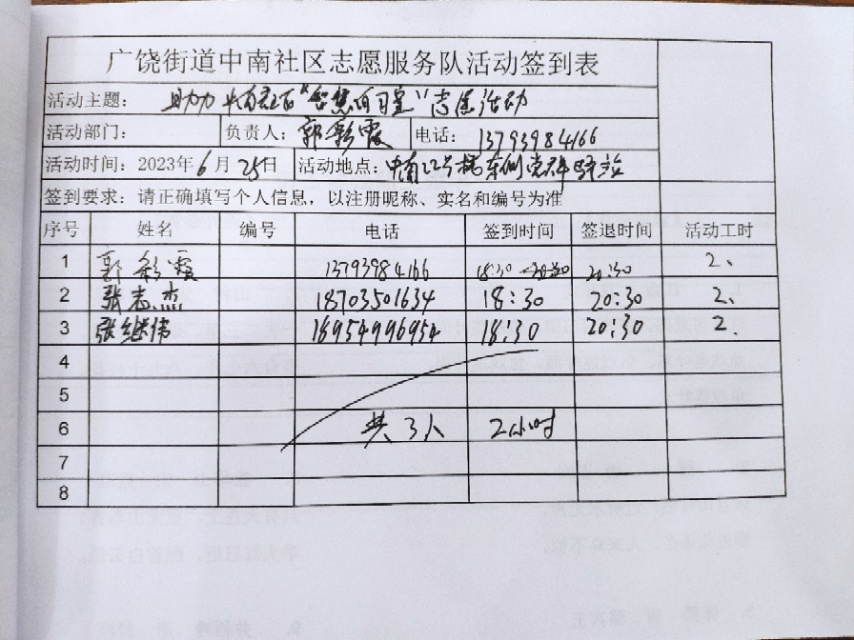 广饶街道中南社区志愿服务队活动签到表
活动主题： 助力中南社区“智慧自习室”志愿活动
活动部门： 负责人：郭彩霞 电话：13793984166
活动时间：2023年6月25日 活动地点：中南22号楼东侧党群驿站
签到要求：请正确填写个人信息，以注册昵称、实名和编号为准
序号 姓名 编号 电话 签到时间 签退时间 活动工时
1 郭彩霞 13793984166 18:30 20:30 2、
2 张志杰 18703501634 18:30 20:30 2、
3 张继伟 18954996954 18:30 20:30 2.
4
5
6 共3人 2小时
7
8